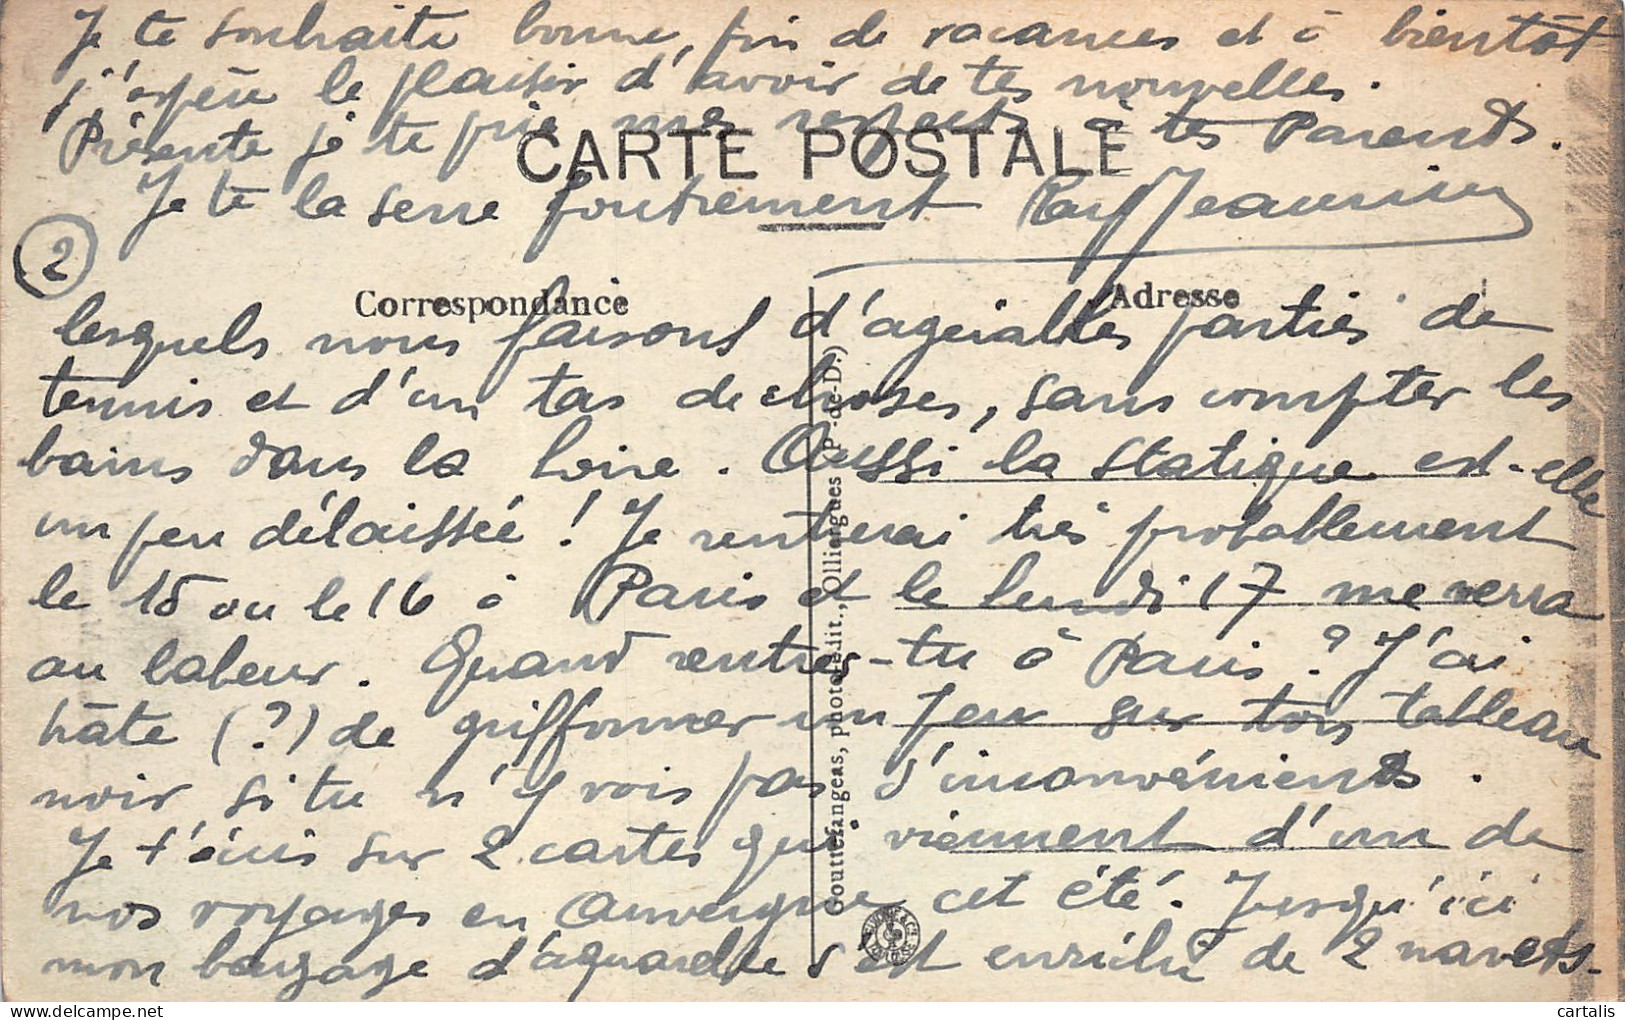 Je te souhaite bonne fin de vacances et à bientôt
j'espère le plaisir d'avoir de tes nouvelles.
Présente je te prie mes respects à tes Parents.
CARTE POSTALE
Je te la serre foutrement
2
Correspondance
Adresse
lesquels nous faisons d'agréables parties de
tennis et d'un tas de choses, sans compter les
bains dans la Loire. Aussi la statique est-elle
un peu délaissée ! Je rentrerai très probablement
le 15 ou le 16 à Paris et le lundi 17 me verra
au labeur. Quand rentres-tu à Paris ? J'ai
hâte (?) de griffonner un peu sur ton tableau
noir si tu n'y vois pas d'inconvénients.
Je t'écris sur 2 cartes qui viennent d'un de
nos voyages en Auvergne cet été. Jusqu'ici
mon bagage d'aquarelle s'est enrichi de 2 navets.
Gouttefangeas, photo-édit., Olliergues (P.-de-D.)
cartalis